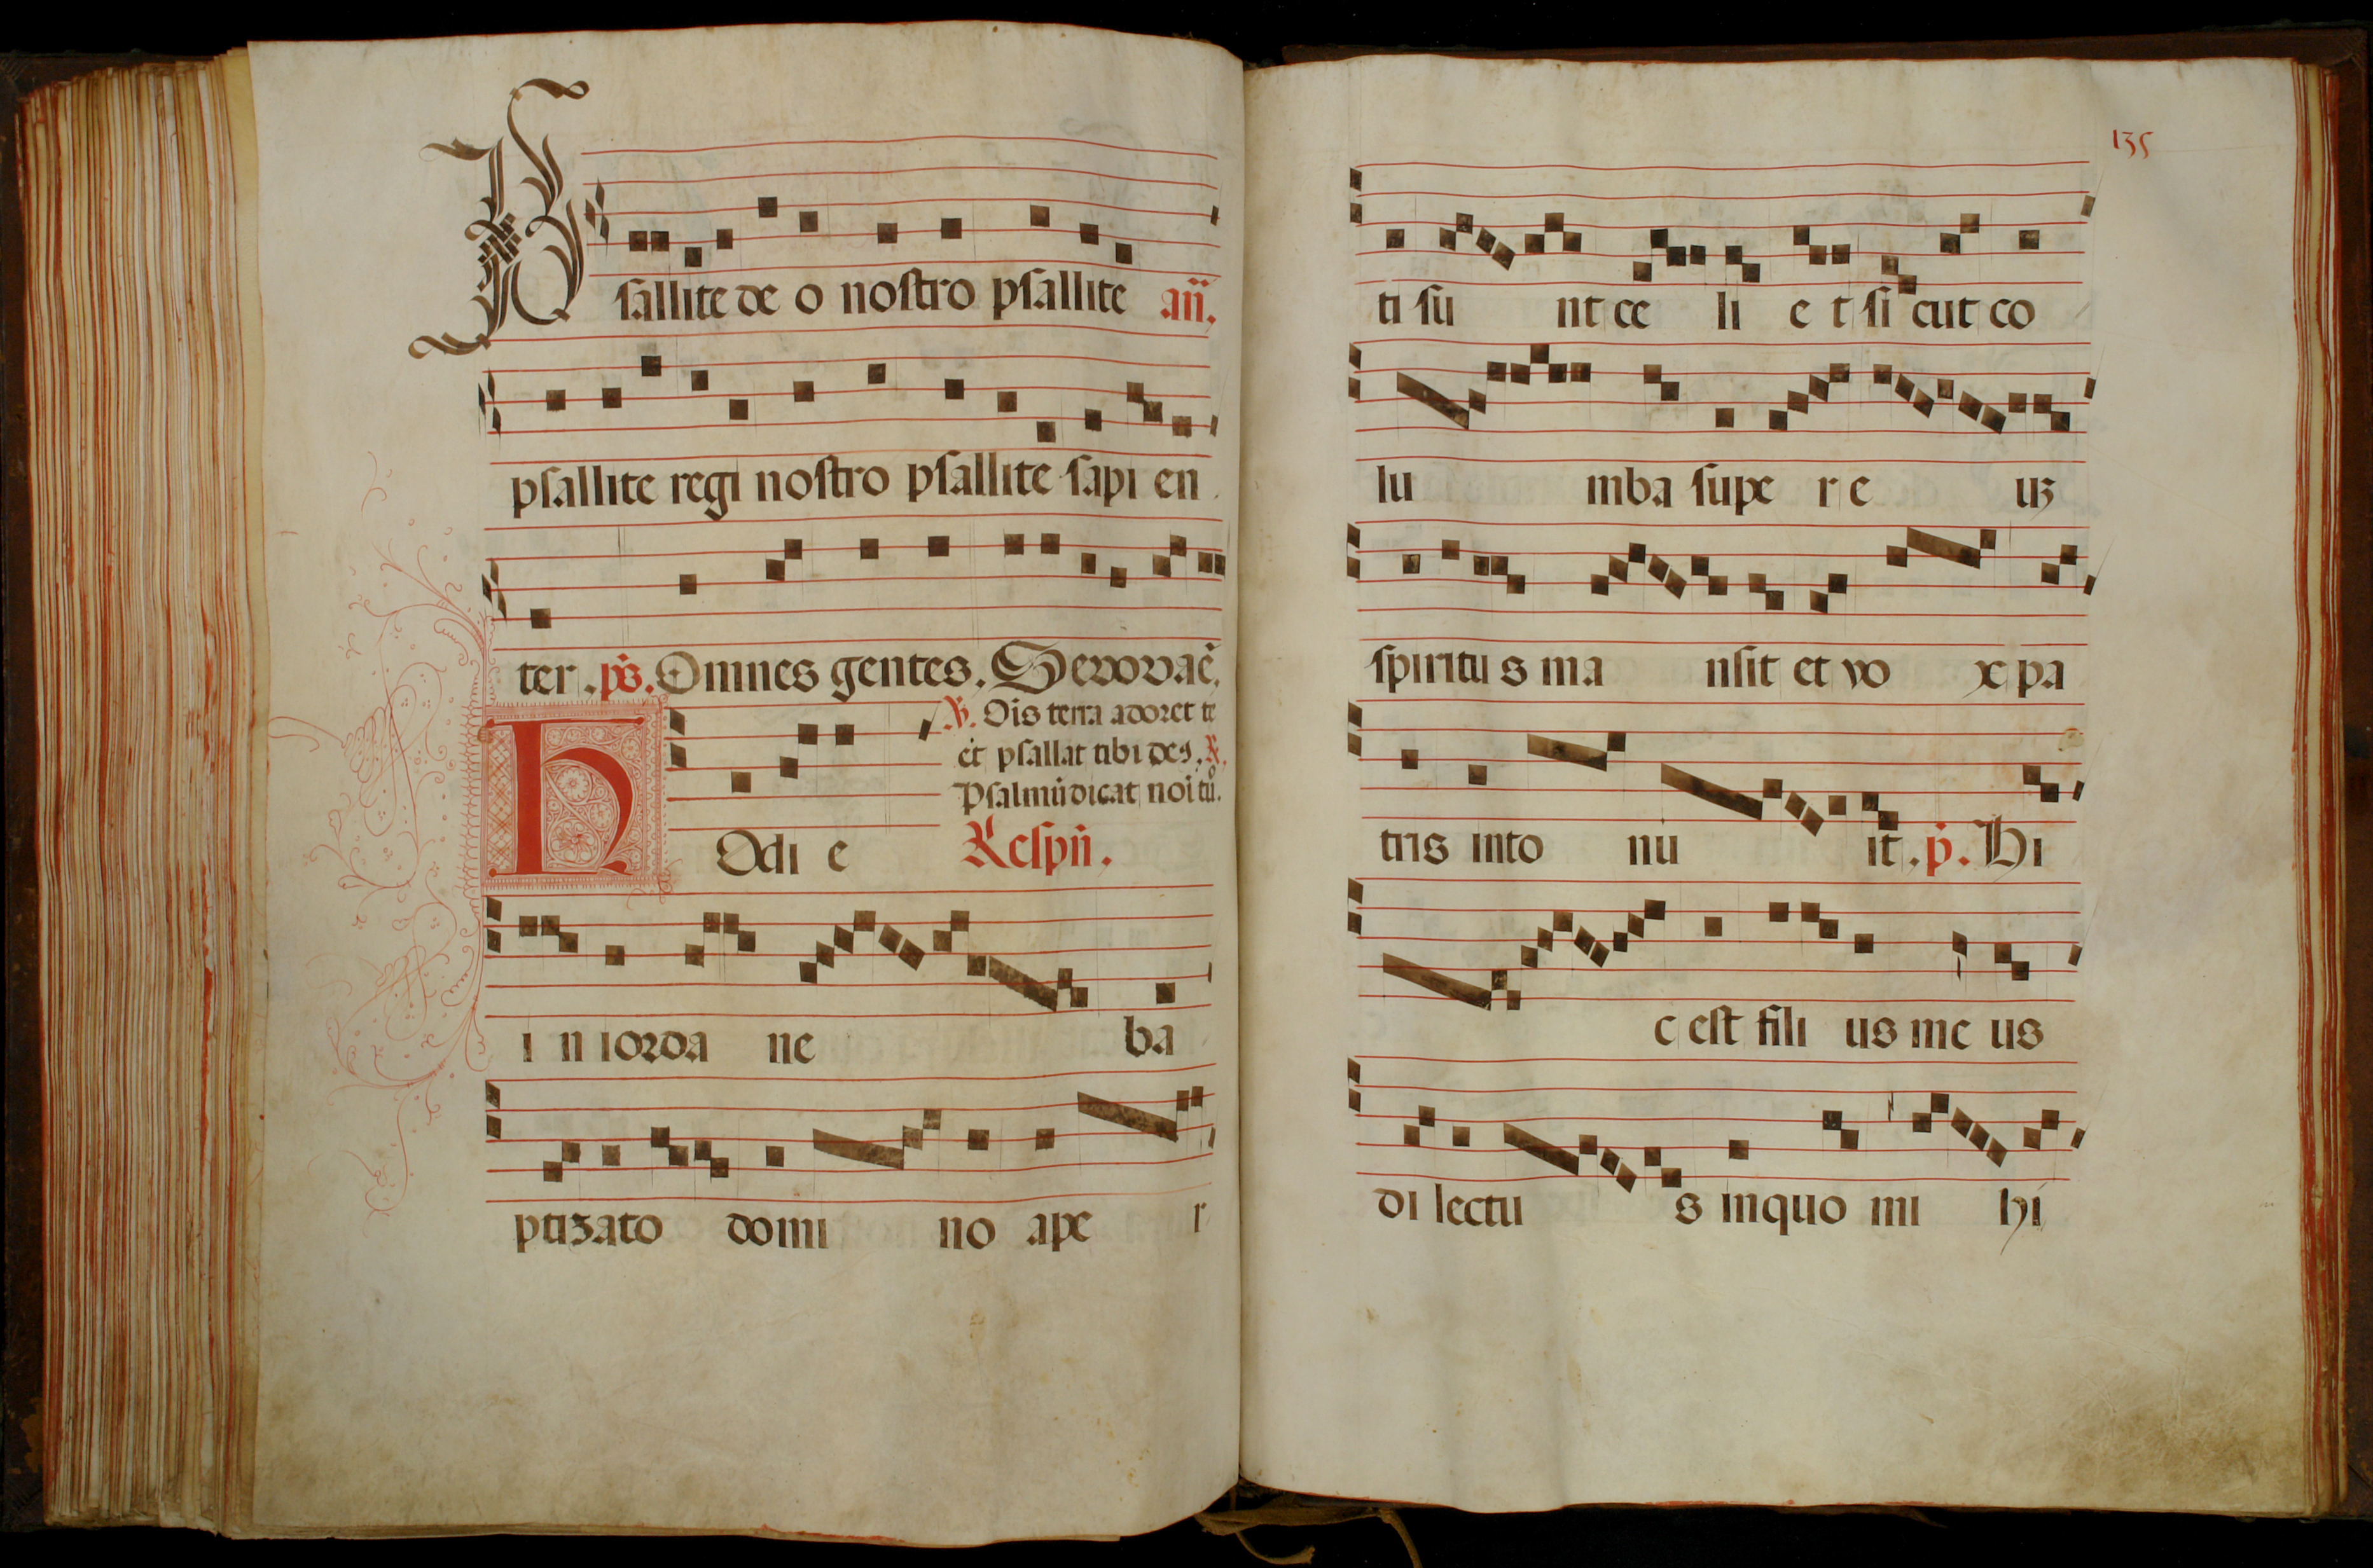 Psallite deo nostro psallite añ.
psallite regi nostro psallite sapien
ter. ps. Omnes gentes. Seuouaē.
℣. Oīs terra adoret te
et psallat tibi deꝰ. ℟.
Psalmū dicat noī tuo.
Hodie Respñ.
in iorda ne ba
ptizato domi no ape r
135
ti su nt ce li et sicut co
lu mba supe r e uꝫ
spiritus ma nsit et vo x pa
tris into nu it. p̄. Hi
c est fili us me us
di lectu s in quo mi hi